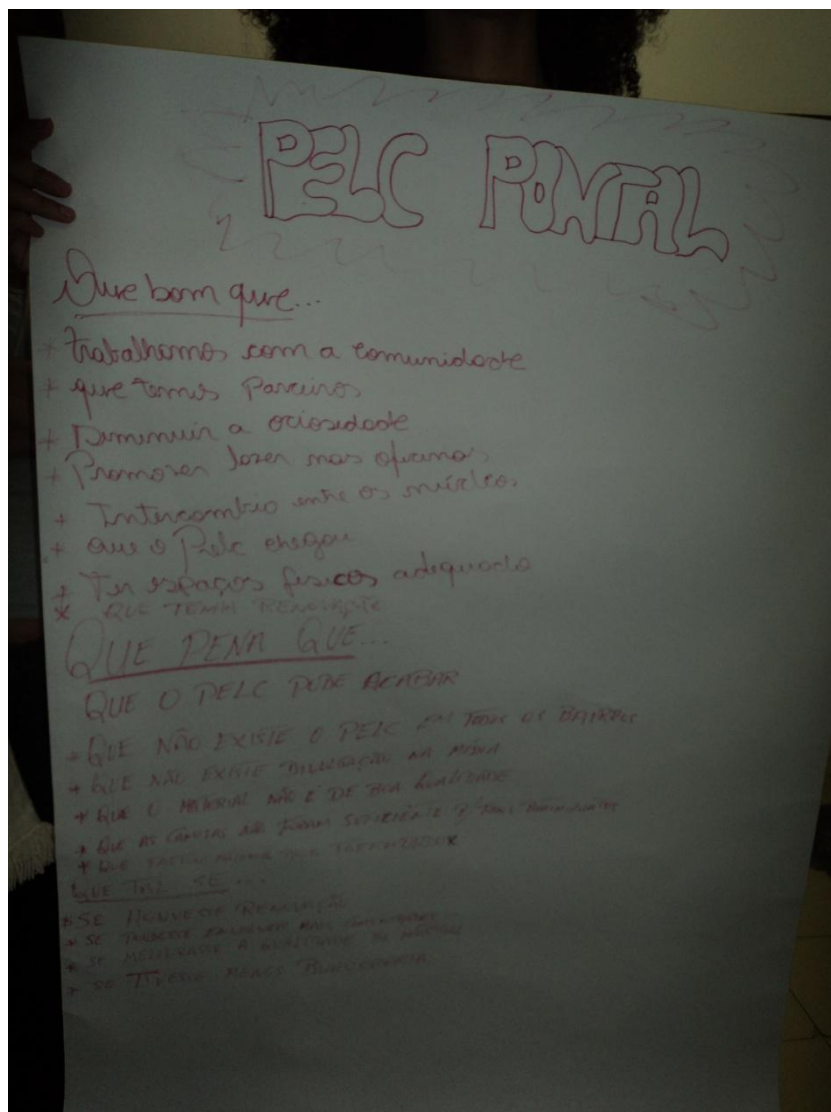 PELC PONTAL
Que bom que...
+ trabalhamos com a comunidade
+ que temos Parceiros
+ Diminuir a ociosidade
+ Promover lazer nas oficinas
+ Intercambio entre os núcleos
+ que o Pelc chegou
+ Ter espaços fisicos adequado
* QUE TENHA RENOVAÇÃO
QUE PENA QUE...
QUE O PELC PODE ACABAR
+ QUE NÃO EXISTE O PELC EM TODOS OS BAIRROS
+ QUE NÃO EXISTE DIVULGAÇÃO NA MÍDIA
+ QUE O MATERIAL NÃO É DE BOA QUALIDADE
+ QUE AS CAMISAS NÃO FORAM SUFICIENTE P TODOS
+ QUE
QUE TAL SE...
* SE HOUVESSE RENOVAÇÃO
* SE PUDESSE MAIS
* SE MELHORASSE A QUALIDADE DO
+ SE TIVESSE MENOS BUROCRACIA